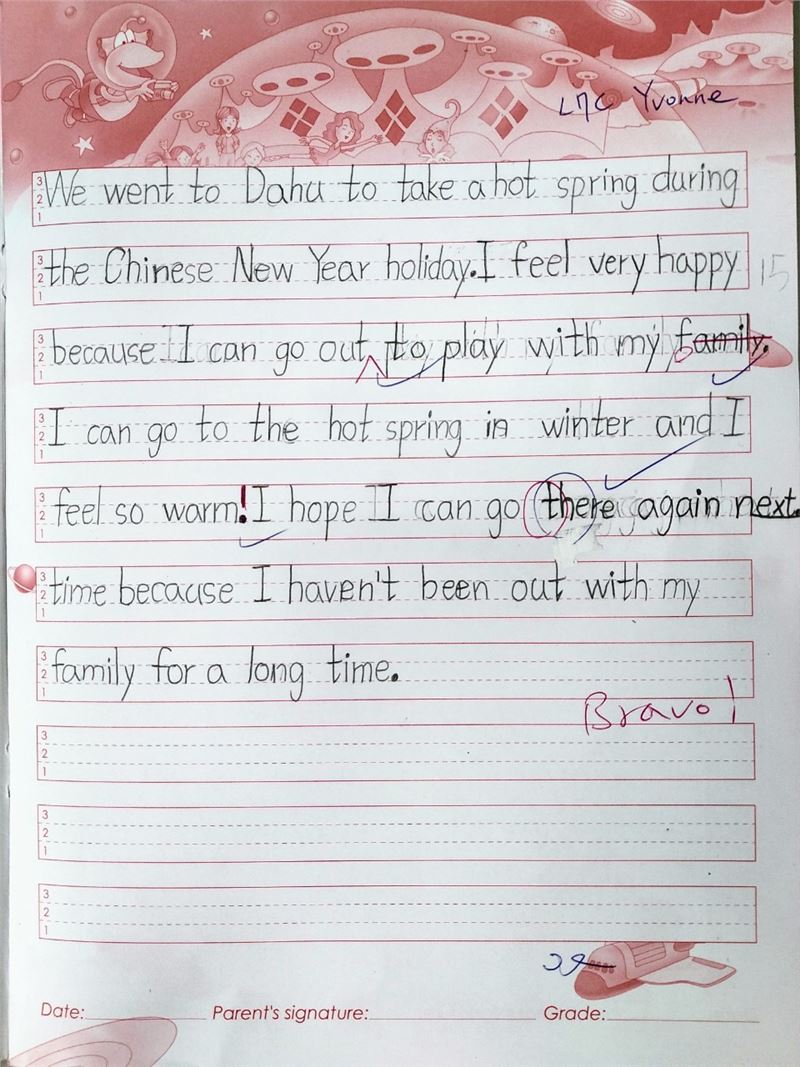 L7C Yvonne
3 We went to Dahu to take a hot spring during
2
1
3 the Chinese New Year holiday. I feel very happy 15
2
1
3 because I can go out to play with my family.
2
1
3 I can go to the hot spring in winter and I
2
1
3 feel so warm! I hope I can go there again next
2
1
3 time because I haven't been out with my
2
1
3 family for a long time.
2
1
Bravo!
3
2
1
3
2
1
3
2
1
Date: Parent's signature: Grade: